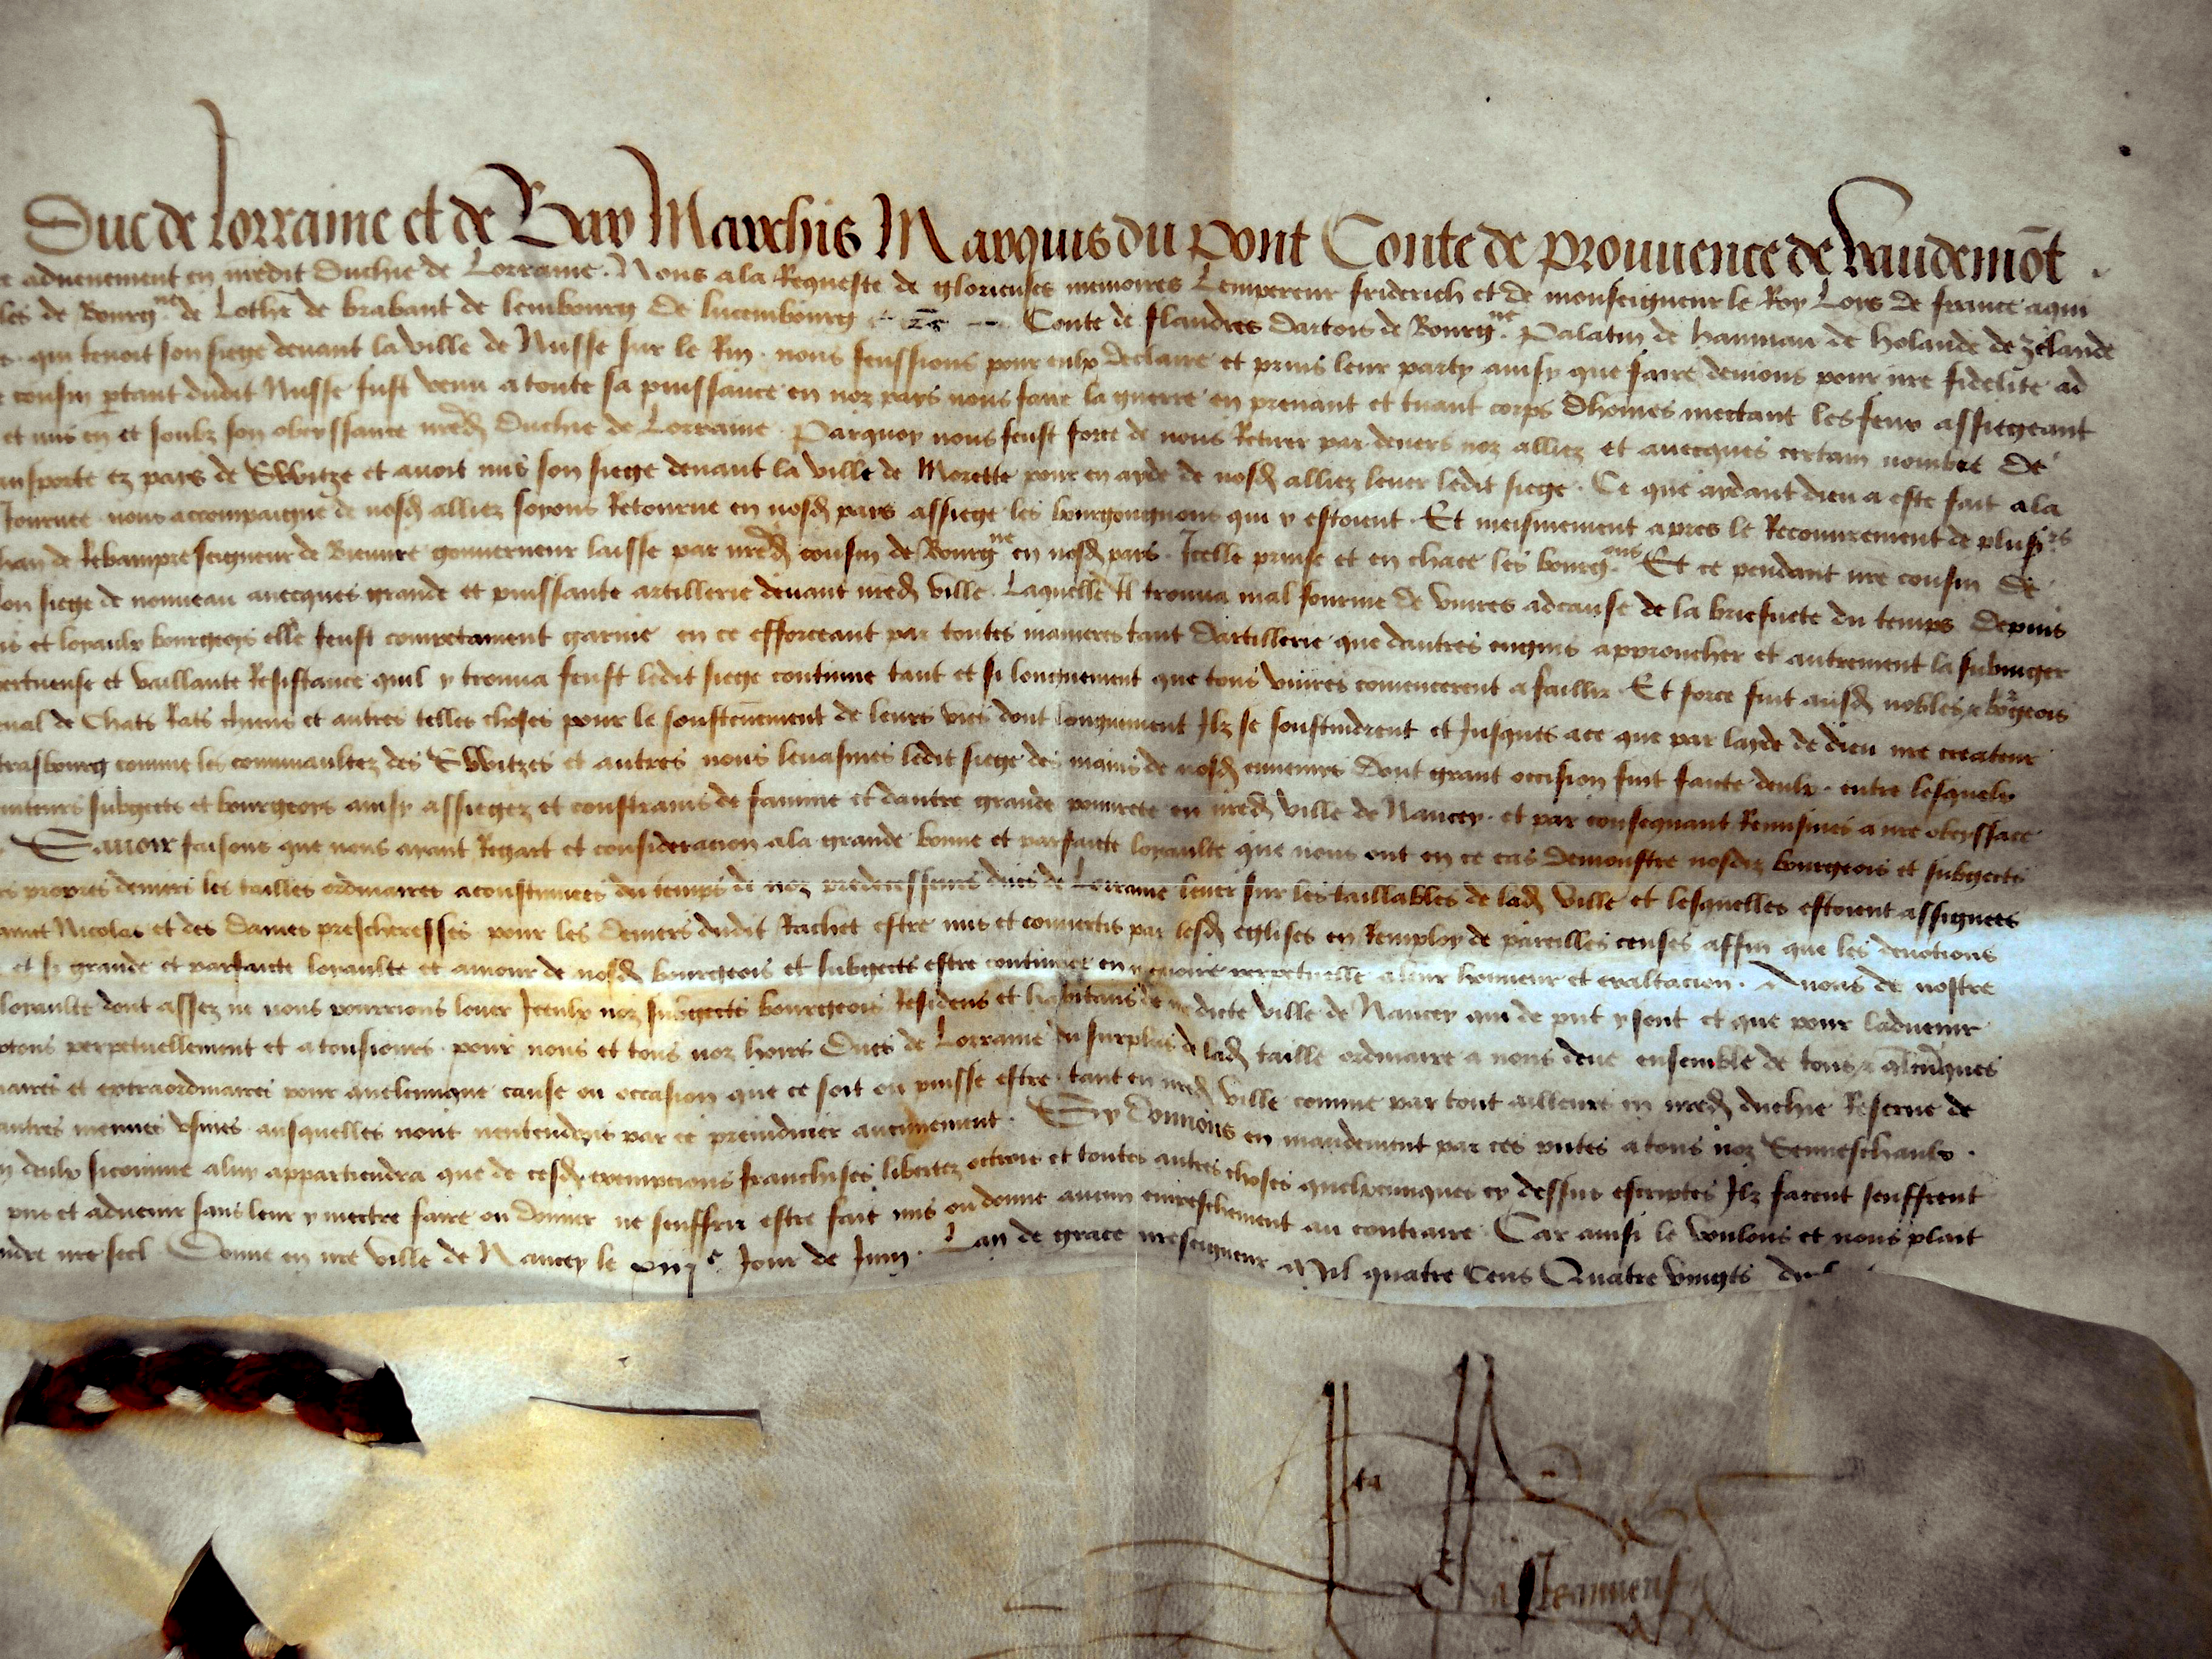 Duc de lorraine et de Bar Marchis Marquis du pont Conte de prouuence de vaudemōt
aduenement en nredit Duchie de Lorraine. Nous a la Requeste de glorieuses memoires Lempereur friderich et de monseigneur le Roy Loys de france a qui
les de Bourgne de Lothe de brabant de lembourg de lucembourg Conte de flandres dartois de Bourgne palatin de haynnau de holande de zelande
qui tenoit son siege deuant la ville de Nusse sur le Rin. nous feussions pour eulx declaire et prins leur party ainsy que faire deuions pour nre fidelite ad
cousin ptant dudit Nusse fust venu a toute sa puissance en noz pays nous faire la guerre en prenant et tuant corps dhomes mectant les feux assiegeant
et mis en et soubz son obeyssance nred Duchie de Lorraine. Parquoy nous feust force de nous Retirer par deuers noz alliez et auecques certain nombre de
ansporte ez pays de Switze et auoit mis son siege deuant la ville de Morette pour en ayde de nosd alliez leuer ledit siege. Ce que aydant dieu a este fait a la
Journee. nous accompaigne de nosd alliez soyons Retourne en nosd pays assiege les bourgongnons qui y estoient. Et meismement apres le Recouurement de plusirs
han de Rebampre seigneur de Bieure gouuerneur laisse par nred cousin de Bourgne en nosd pays. Icelle prinse et en chace les bourgons Et ce pendant nre cousin de
son siege de nouueau auecques grande et puissante artillerie deuant nred ville. Laquelle Il trouua mal fournie de viures adcause de la briefuete du temps Depuis
is et loyaulx bourgeois elle feust competament garnie en ce efforceant par toutes manieres tant dartillerie que dautres engins approucher et autrement la subiuger
vertueuse et vaillante Resistance quil y trouua feust ledit siege continue tant et si longuement que tous viures comencerent a faillir. Et force fut ausd nobles & bourgeois
eual de Chats Rats chiens et autres telles choses pour le soustenement de leurs vies dont longuement Ilz se soustindrent et Jusques a ce que par layde de dieu nre createur
trasbourg comme les communaultez des Switzes et autres nous leuasmes ledit siege des mains de nosd ennemys Dont grant occision fut faicte deulx. entre lesquelx
uiteurs subgects et bourgeoys ainsy assiegez et constrains de famine et dautre grande pourete en nred ville de Nancey. et par consequant Remismes a nre obeyssace
Sauoir faisons que nous ayant Regart et consideracion a la grande bonne et parfaicte loyaulte que nous ont en ce cas demonstre nosdiz bourgeois et subgects
es propres deniers les tailles ordinaires acoustumees du temps de noz predecesseurs ducs de Lorraine leuer sur les taillables de lad ville et lesquelles estoient assignees
ainct Nicolas et des dames prescheresses pour les deniers dudit Rachet estre mis et conuertis par lesd eglises en Remploy de pareilles censes affin que les deuotions
et si grande et parfaicte loyaulte et amour de nosd bourgeois et subgects estre continuee en memoire perpetuelle a leur honneur et exaltacion. Auons de nostre
loyaulte dont assez ne nous pourrions louer Iceulx noz subgects bourgeois Residens et habitans de nredicte ville de Nancey qui de pnt y sont et que pour laduenir
ptons perpetuellement et a tousiours. pour nous et tous noz hoirs Ducs de Lorraine du surplus de lad taille ordinaire a nous deue ensemble de tous & qlcuques
naires et extraordinaires pour quelcunque cause ou occasion que ce soit ou puisse estre. tant en nred ville comme par tout ailleurs en nred duchie Reserue de
autres menues vsines ausquelles nont nentendons par ce preiudicier aucunement. Sy Donnons en mandement par ces pntes a tous noz Senneschaulx.
n deulx sicomme a luy appartiendra que de cesd exempcions franchises libertez octroie et toutes autres choses quelxcunques cy dessus escriptes Ilz facent seuffrent
pns et aduenir sans leur y mectre faire ou donner ne seuffrir estre fait mis ou donne aucun empeschement au contraire. Car ainsi le voulons et nous plaist
ndre nre seel Donne en nre ville de Nancey le xiije Jour de Juing. Lan de grace nreseigneur Mil quatre Cens Quatre vingts
Ita